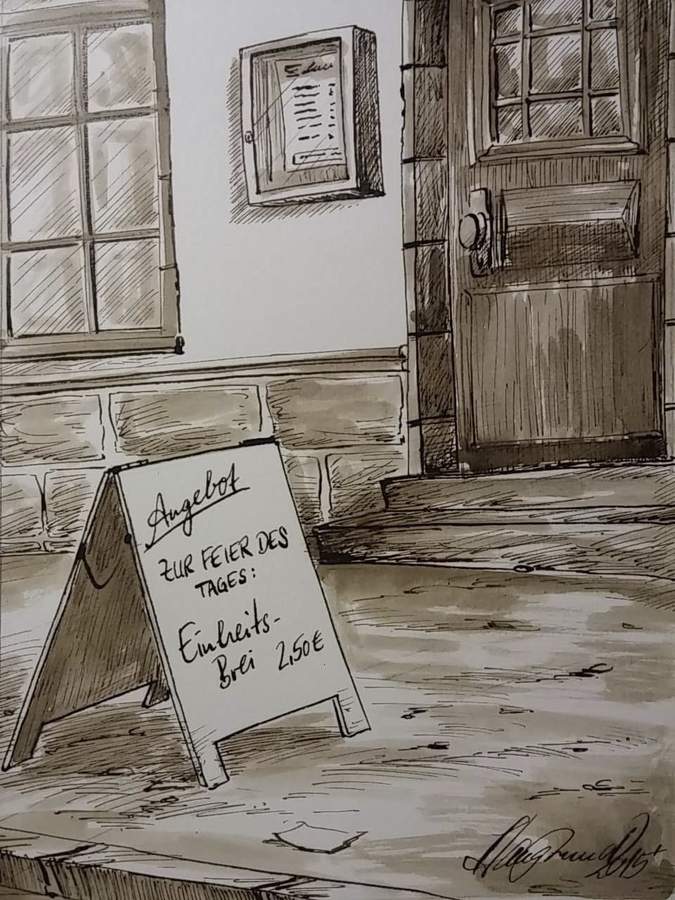 Angebot
ZUR FEIER DES
TAGES:
Einheits-
Brei 2,50€